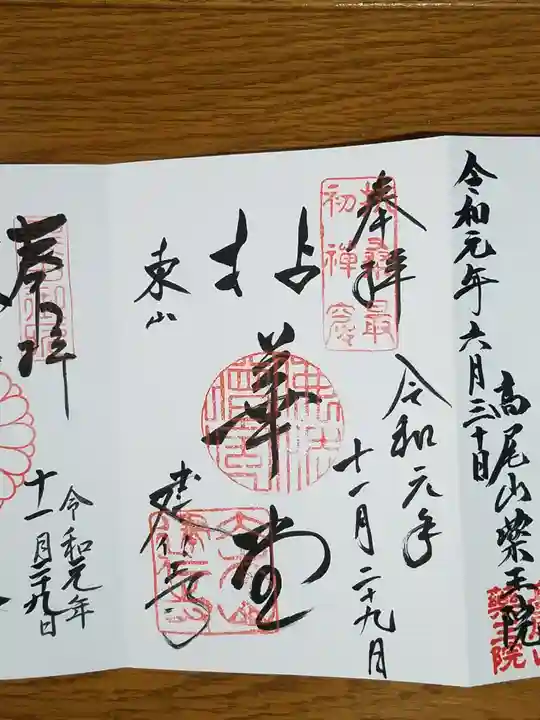 令和元年六月三十日
高尾山薬王院
奉拝
令和元年
十一月二十九月
拈華堂
東山
建仁寺
扶桑最
初禅窟
奉拝
令和元年
十一月二十九日
薬王院